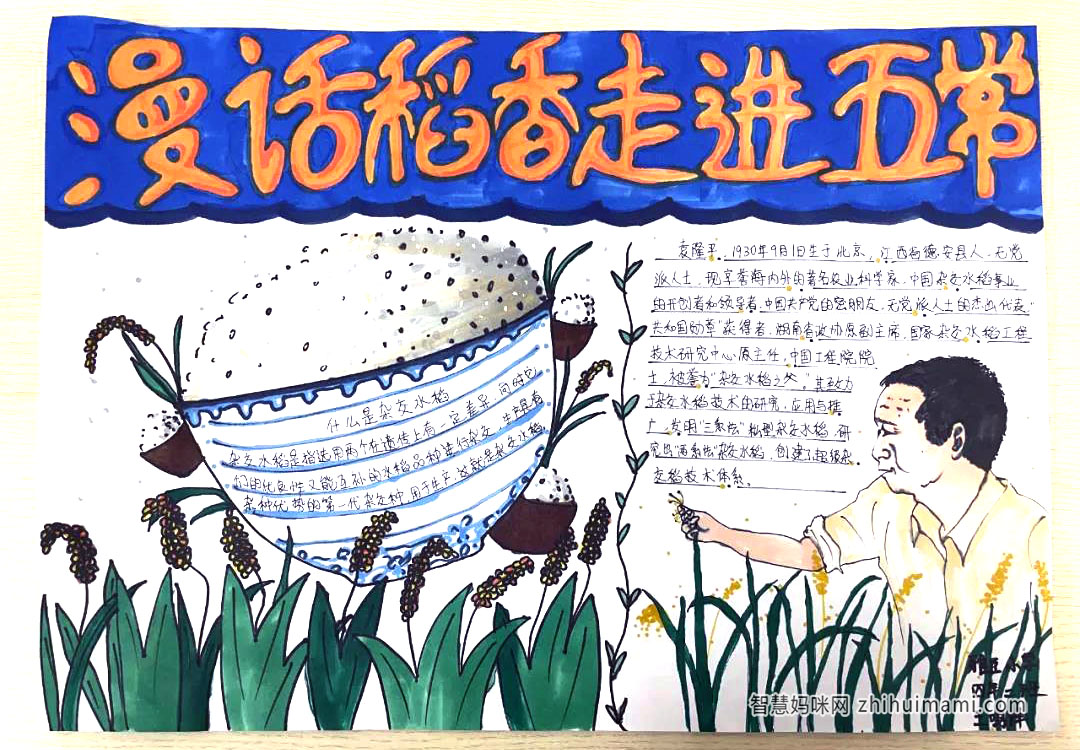 漫话稻香走进五常
什么是杂交水稻
杂交水稻是指选用两个在遗传上有一定差异，同时它
们的优良性又能互补的水稻品种进行杂交，生产具有
杂种优势的第一代杂交种，用于生产，这就是杂交水稻
袁隆平，1930年9月1日生于北京，江西省德安县人，无党
派人士，现享誉海内外的著名农业科学家，中国杂交水稻事业
的开创者和领导者，中国共产党的亲密朋友，无党派人士的杰出代表，“
共和国勋章”获得者，湖南省政协原副主席，国家杂交水稻工程
技术研究中心原主任，中国工程院院
士，被誉为“杂交水稻之父。”其致力
于杂交水稻技术的研究，应用与推
广，发明“三系法”籼型杂交水稻，研
究出“两系法”杂交水稻，创建了超级杂
交稻技术体系。
小学
二班
智慧妈咪网 zhihuimami.com